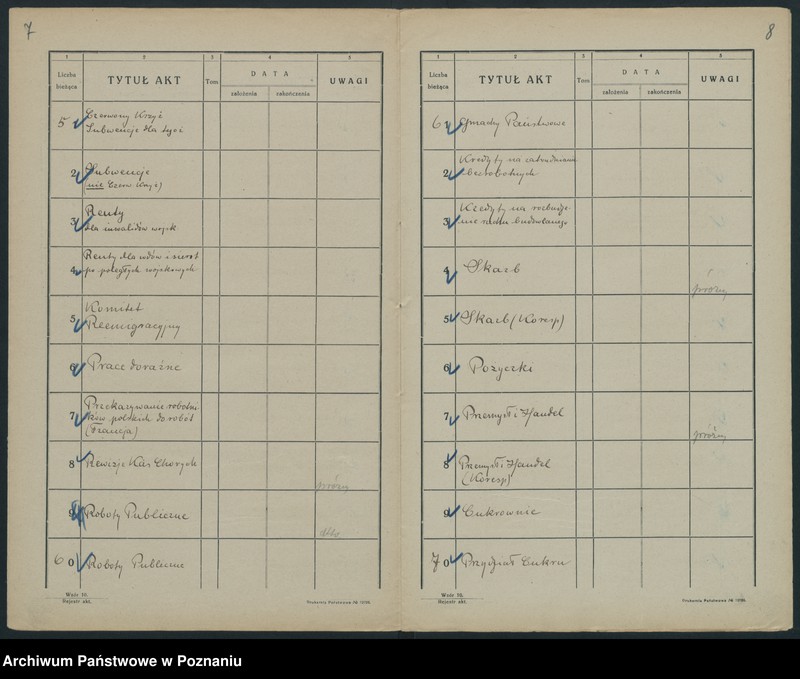 7
1
2
3
4
5
Liczba
bieżąca
TYTUŁ AKT
Tom
DATA
założenia
zakończenia
UWAGI
5 1 Czerwony Krzyż
Subwencje dla tegoż
2 Subwencje
(nie Czerw. Krzyż)
3 Renty
dla inwalidów wojsk
4 Renty dla wdów i sierot
po poległych wojskowych
5 Komitet
Reemigracyjny
6 Prace doraźne
7 Przekazywanie robotni-
ków polskich do robót
(Francja)
8 Rewizje Kas Chorych
próżny
9 Roboty Publiczne
dtto
60 Roboty Publiczne
Wzór 10.
Rejestr akt.
Drukarnia Państwowa
8
1
2
3
4
5
Liczba
bieżąca
TYTUŁ AKT
Tom
DATA
założenia
zakończenia
UWAGI
61 Gmachy Państwowe
2 Kredyty na zatrudnienie
bezrobotnych
3 Kredyty na rozbudo-
nie ruchu budowlanego
4 Skarb
próżny
5 Skarb (Koresp)
6 Pożyczki
7 Przemysł i Handel
próżny
8 Przemysł i Handel
(Koresp)
9 Cukrownie
70 Przydział Cukru
Wzór 10.
Rejestr akt.
Drukarnia Państwowa
Archiwum Państwowe w Poznaniu